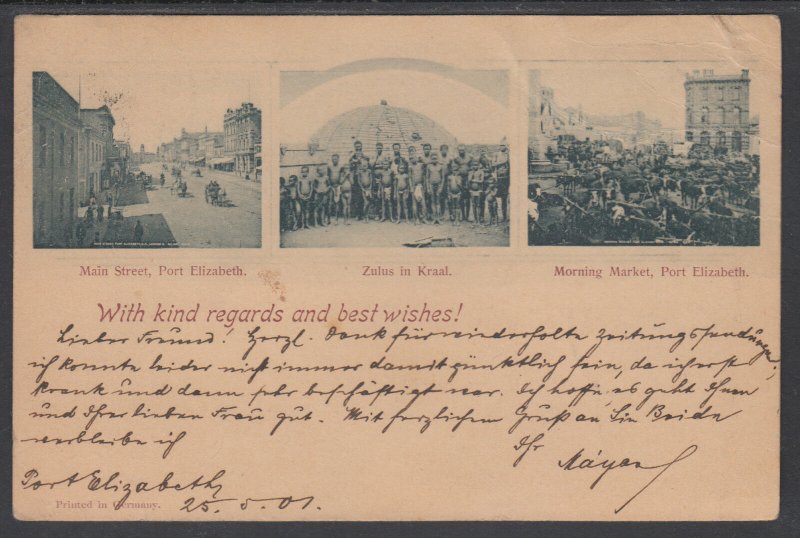 Main Street, Port Elizabeth.
Zulus in Kraal.
Morning Market, Port Elizabeth.
With kind regards and best wishes!
Lieber Freund! Herzl. Dank für wiederholte Zeitungssendungen,
ich konnte leider nicht immer damit pünktlich sein, da ich erst
krank und dann sehr beschäftigt war. Ich hoffe, es geht Ihnen
und Ihrer lieben Frau gut. Mit herzlichem Gruß an Sie Beide
verbleibe ich
Ihr Mayer
Port Elizabeth
25.5.01.
Printed in Germany.